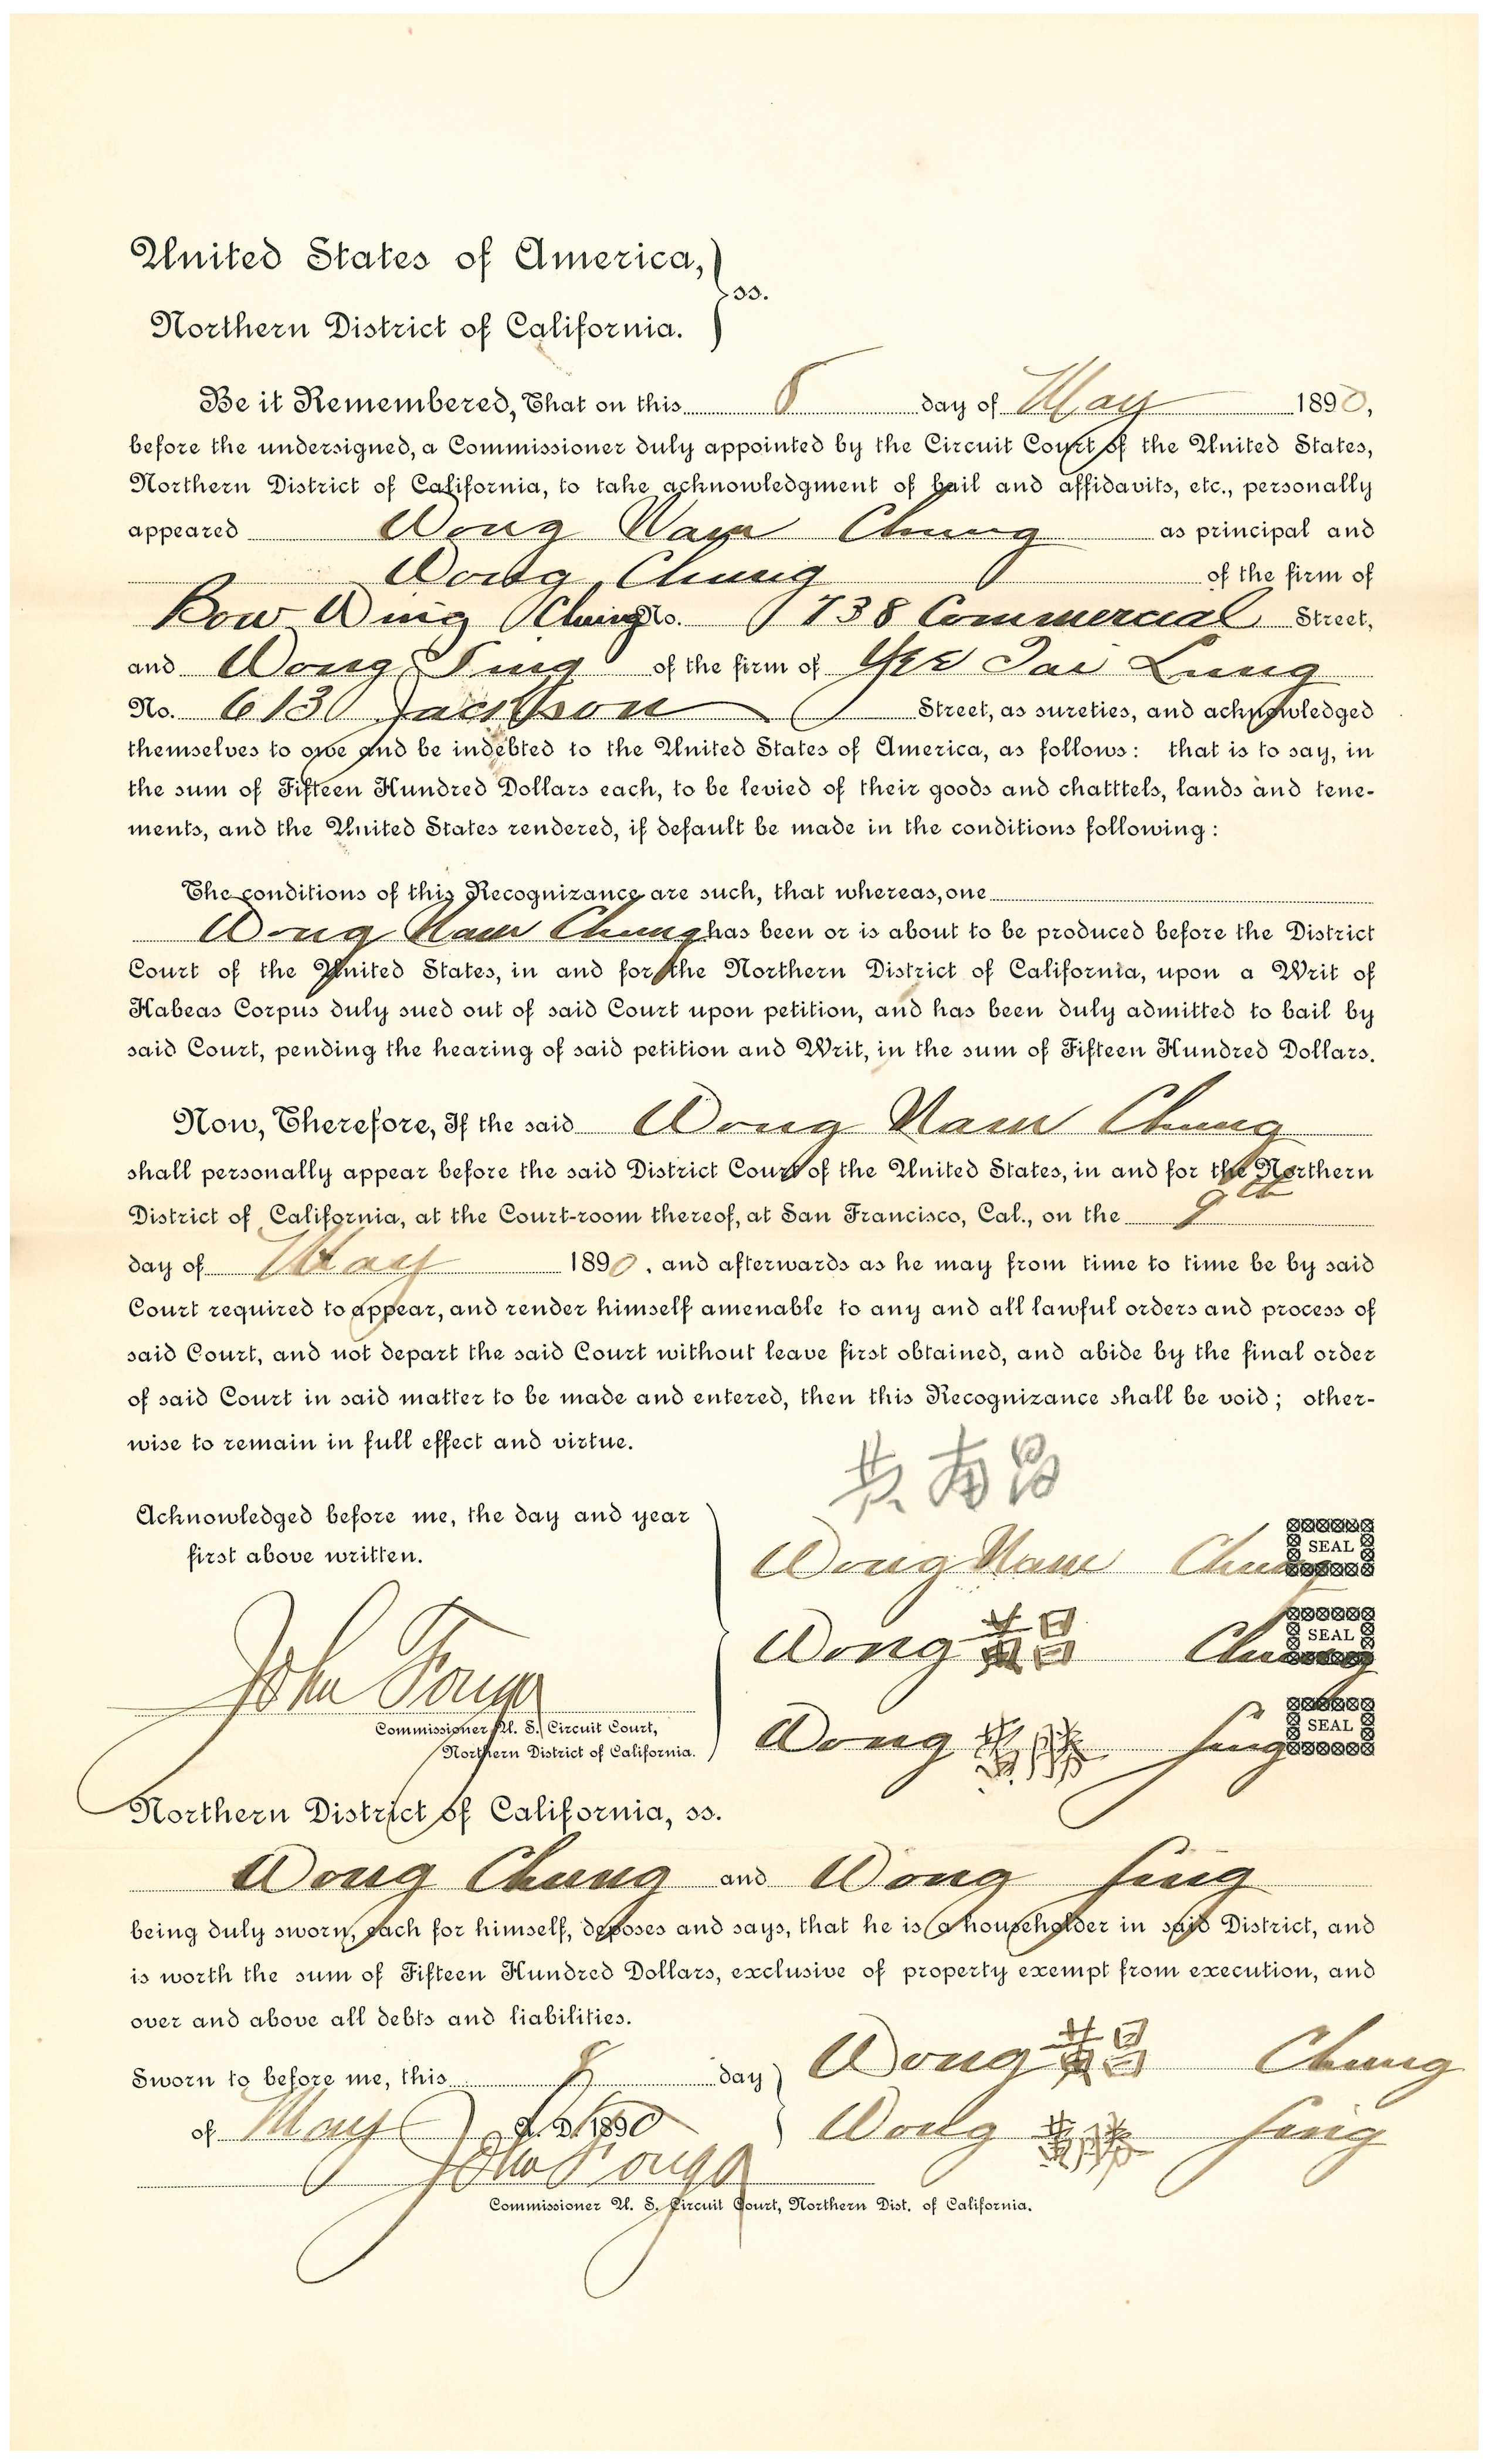 United States of America,
Northern District of California. } ss.
Be it Remembered, That on this 8 day of May 1890,
before the undersigned, a Commissioner duly appointed by the Circuit Court of the United States,
Northern District of California, to take acknowledgment of bail and affidavits, etc., personally
appeared Wong Nam Chung as principal and
Wong Chung of the firm of
Bow Wing Chung No. 738 Commercial Street,
and Wong Sing of the firm of Yee Tai Lung
No. 613 Jackson Street, as sureties, and acknowledged
themselves to owe and be indebted to the United States of America, as follows: that is to say, in
the sum of Fifteen Hundred Dollars each, to be levied of their goods and chatttels, lands and tene-
ments, and the United States rendered, if default be made in the conditions following:
The conditions of this Recognizance are such, that whereas, one
Wong Nam Chung has been or is about to be produced before the District
Court of the United States, in and for the Northern District of California, upon a Writ of
Habeas Corpus duly sued out of said Court upon petition, and has been duly admitted to bail by
said Court, pending the hearing of said petition and Writ, in the sum of Fifteen Hundred Dollars.
Now, Therefore, If the said Wong Nam Chung
shall personally appear before the said District Court of the United States, in and for the Northern
District of California, at the Court-room thereof, at San Francisco, Cal., on the 9th
day of May 1890, and afterwards as he may from time to time be by said
Court required to appear, and render himself amenable to any and all lawful orders and process of
said Court, and not depart the said Court without leave first obtained, and abide by the final order
of said Court in said matter to be made and entered, then this Recognizance shall be void; other-
wise to remain in full effect and virtue.
黄南昌
Acknowledged before me, the day and year
first above written.
Wong Nam Chung SEAL
Wong 黃昌 Chung SEAL
John Fouga
Commissioner U. S. Circuit Court,
Northern District of California.
Wong 黃勝 Sing SEAL
Northern District of California, ss.
Wong Chung and Wong Sing
being duly sworn, each for himself, deposes and says, that he is a householder in said District, and
is worth the sum of Fifteen Hundred Dollars, exclusive of property exempt from execution, and
over and above all debts and liabilities.
Sworn to before me, this 8 day
of May A. D. 1890
Wong 黃昌 Chung
Wong 黃勝 Sing
John Fouga
Commissioner U. S. Circuit Court, Northern Dist. of California.